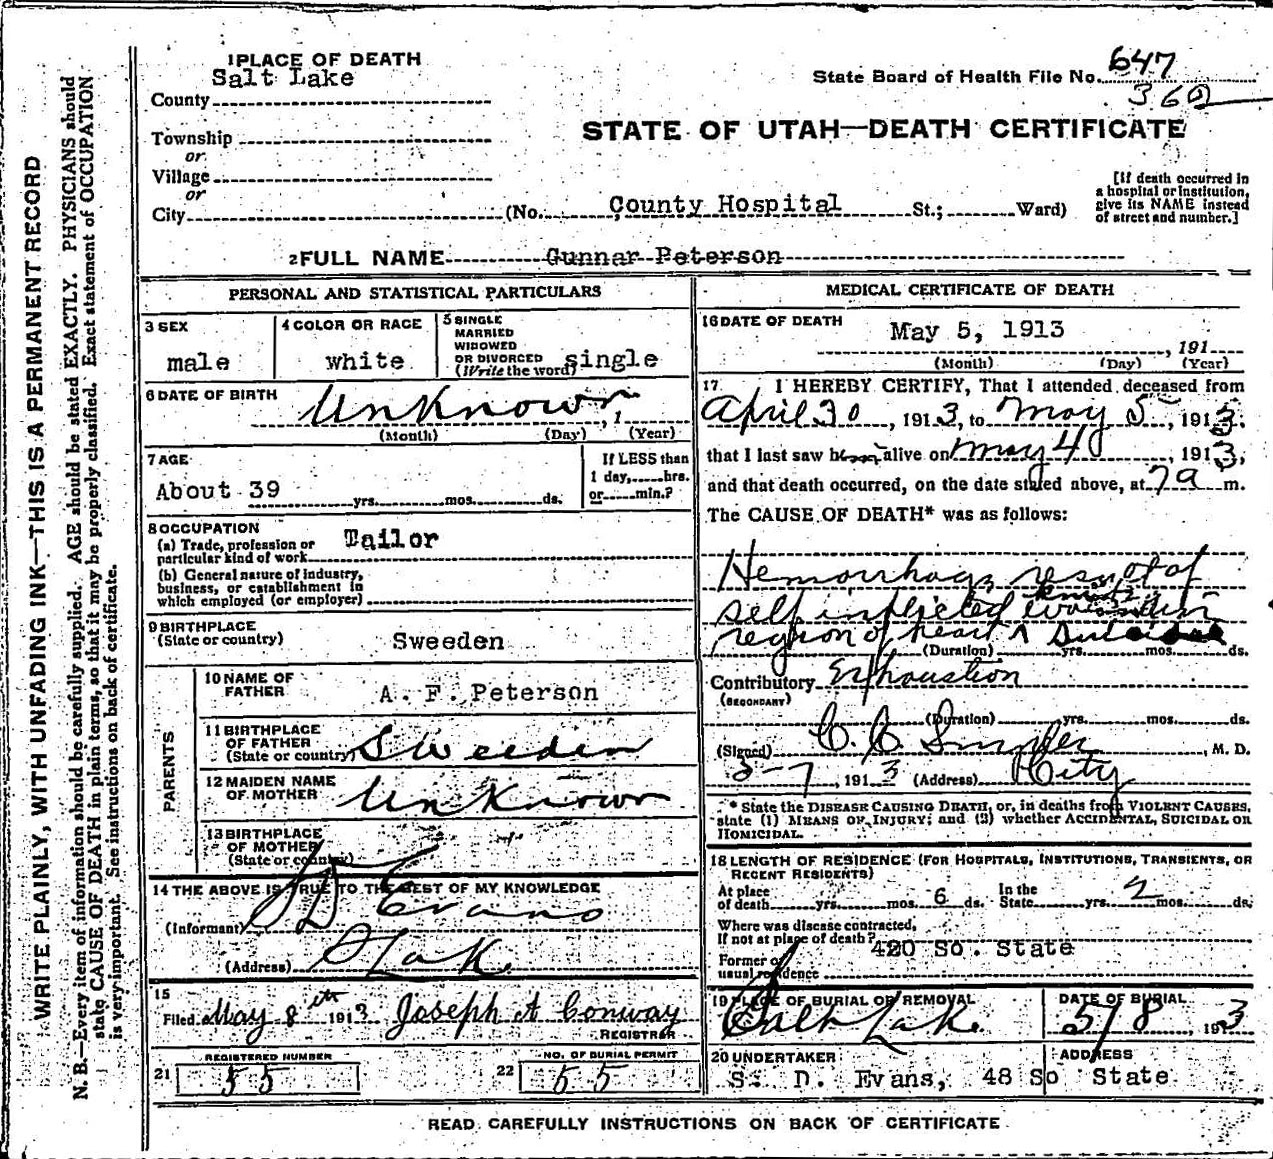 WRITE PLAINLY, WITH UNFADING INK—THIS IS A PERMANENT RECORD
N. B.—Every item of information should be carefully supplied. AGE should be stated EXACTLY. PHYSICIANS should
state CAUSE OF DEATH in plain terms, so that it may be properly classified. Exact statement of OCCUPATION
is very important. See instructions on back of certificate.
1 PLACE OF DEATH
Salt Lake
County
Township
or
Village
or
City
State Board of Health File No. 647
360
STATE OF UTAH—DEATH CERTIFICATE
(No. County Hospital St.; Ward)
[If death occurred in
a hospital or institution,
give its NAME instead
of street and number.]
2 FULL NAME Gunnar Peterson
PERSONAL AND STATISTICAL PARTICULARS
3 SEX
male
4 COLOR OR RACE
white
5 SINGLE
MARRIED
WIDOWED
OR DIVORCED
(Write the word) single
6 DATE OF BIRTH Unknown , 1
(Month) (Day) (Year)
7 AGE
About 39 yrs. mos. ds.
If LESS than
1 day, hrs.
or min.?
8 OCCUPATION
(a) Trade, profession or
particular kind of work Tailor
(b) General nature of industry,
business, or establishment in
which employed (or employer)
9 BIRTHPLACE
(State or country) Sweeden
PARENTS
10 NAME OF
FATHER A. F. Peterson
11 BIRTHPLACE
OF FATHER
(State or country) Sweeden
12 MAIDEN NAME
OF MOTHER Unknown
13 BIRTHPLACE
OF MOTHER
(State or country)
14 THE ABOVE IS TRUE TO THE BEST OF MY KNOWLEDGE
(Informant) S D Evans
(Address) S Lake
15
Filed May 8th 1913 Joseph A Conway
REGISTRAR
REGISTERED NUMBER
21 55
NO. OF BURIAL PERMIT
22 55
MEDICAL CERTIFICATE OF DEATH
16 DATE OF DEATH
May 5, 1913 , 191
(Month) (Day) (Year)
17 I HEREBY CERTIFY, That I attended deceased from
April 30 , 1913, to May 5 , 1913.
that I last saw him alive on May 4 , 1913,
and that death occurred, on the date stated above, at 7 a m.
The CAUSE OF DEATH* was as follows:
Hemorrhage, result of
self inflicted knife wounds in
region of heart Suicide
(Duration) yrs. mos. ds.
Contributory Exhaustion
(SECONDARY)
(Duration) yrs. mos. ds.
(Signed) C. C. Snyder , M. D.
5-7 , 1913 (Address) City
* State the DISEASE CAUSING DEATH, or, in deaths from VIOLENT CAUSES,
state (1) MEANS OF INJURY; and (2) whether ACCIDENTAL, SUICIDAL OR
HOMICIDAL.
18 LENGTH OF RESIDENCE (FOR HOSPITALS, INSTITUTIONS, TRANSIENTS, OR
RECENT RESIDENTS)
At place
of death yrs. mos. 6 ds.
In the
State yrs. 2 mos. ds.
Where was disease contracted,
If not at place of death?
420 So. State
Former or
usual residence
19 PLACE OF BURIAL OR REMOVAL
Salt Lake
DATE OF BURIAL
5/8 , 1913
20 UNDERTAKER
S. D. Evans,
ADDRESS
48 So State
READ CAREFULLY INSTRUCTIONS ON BACK OF CERTIFICATE